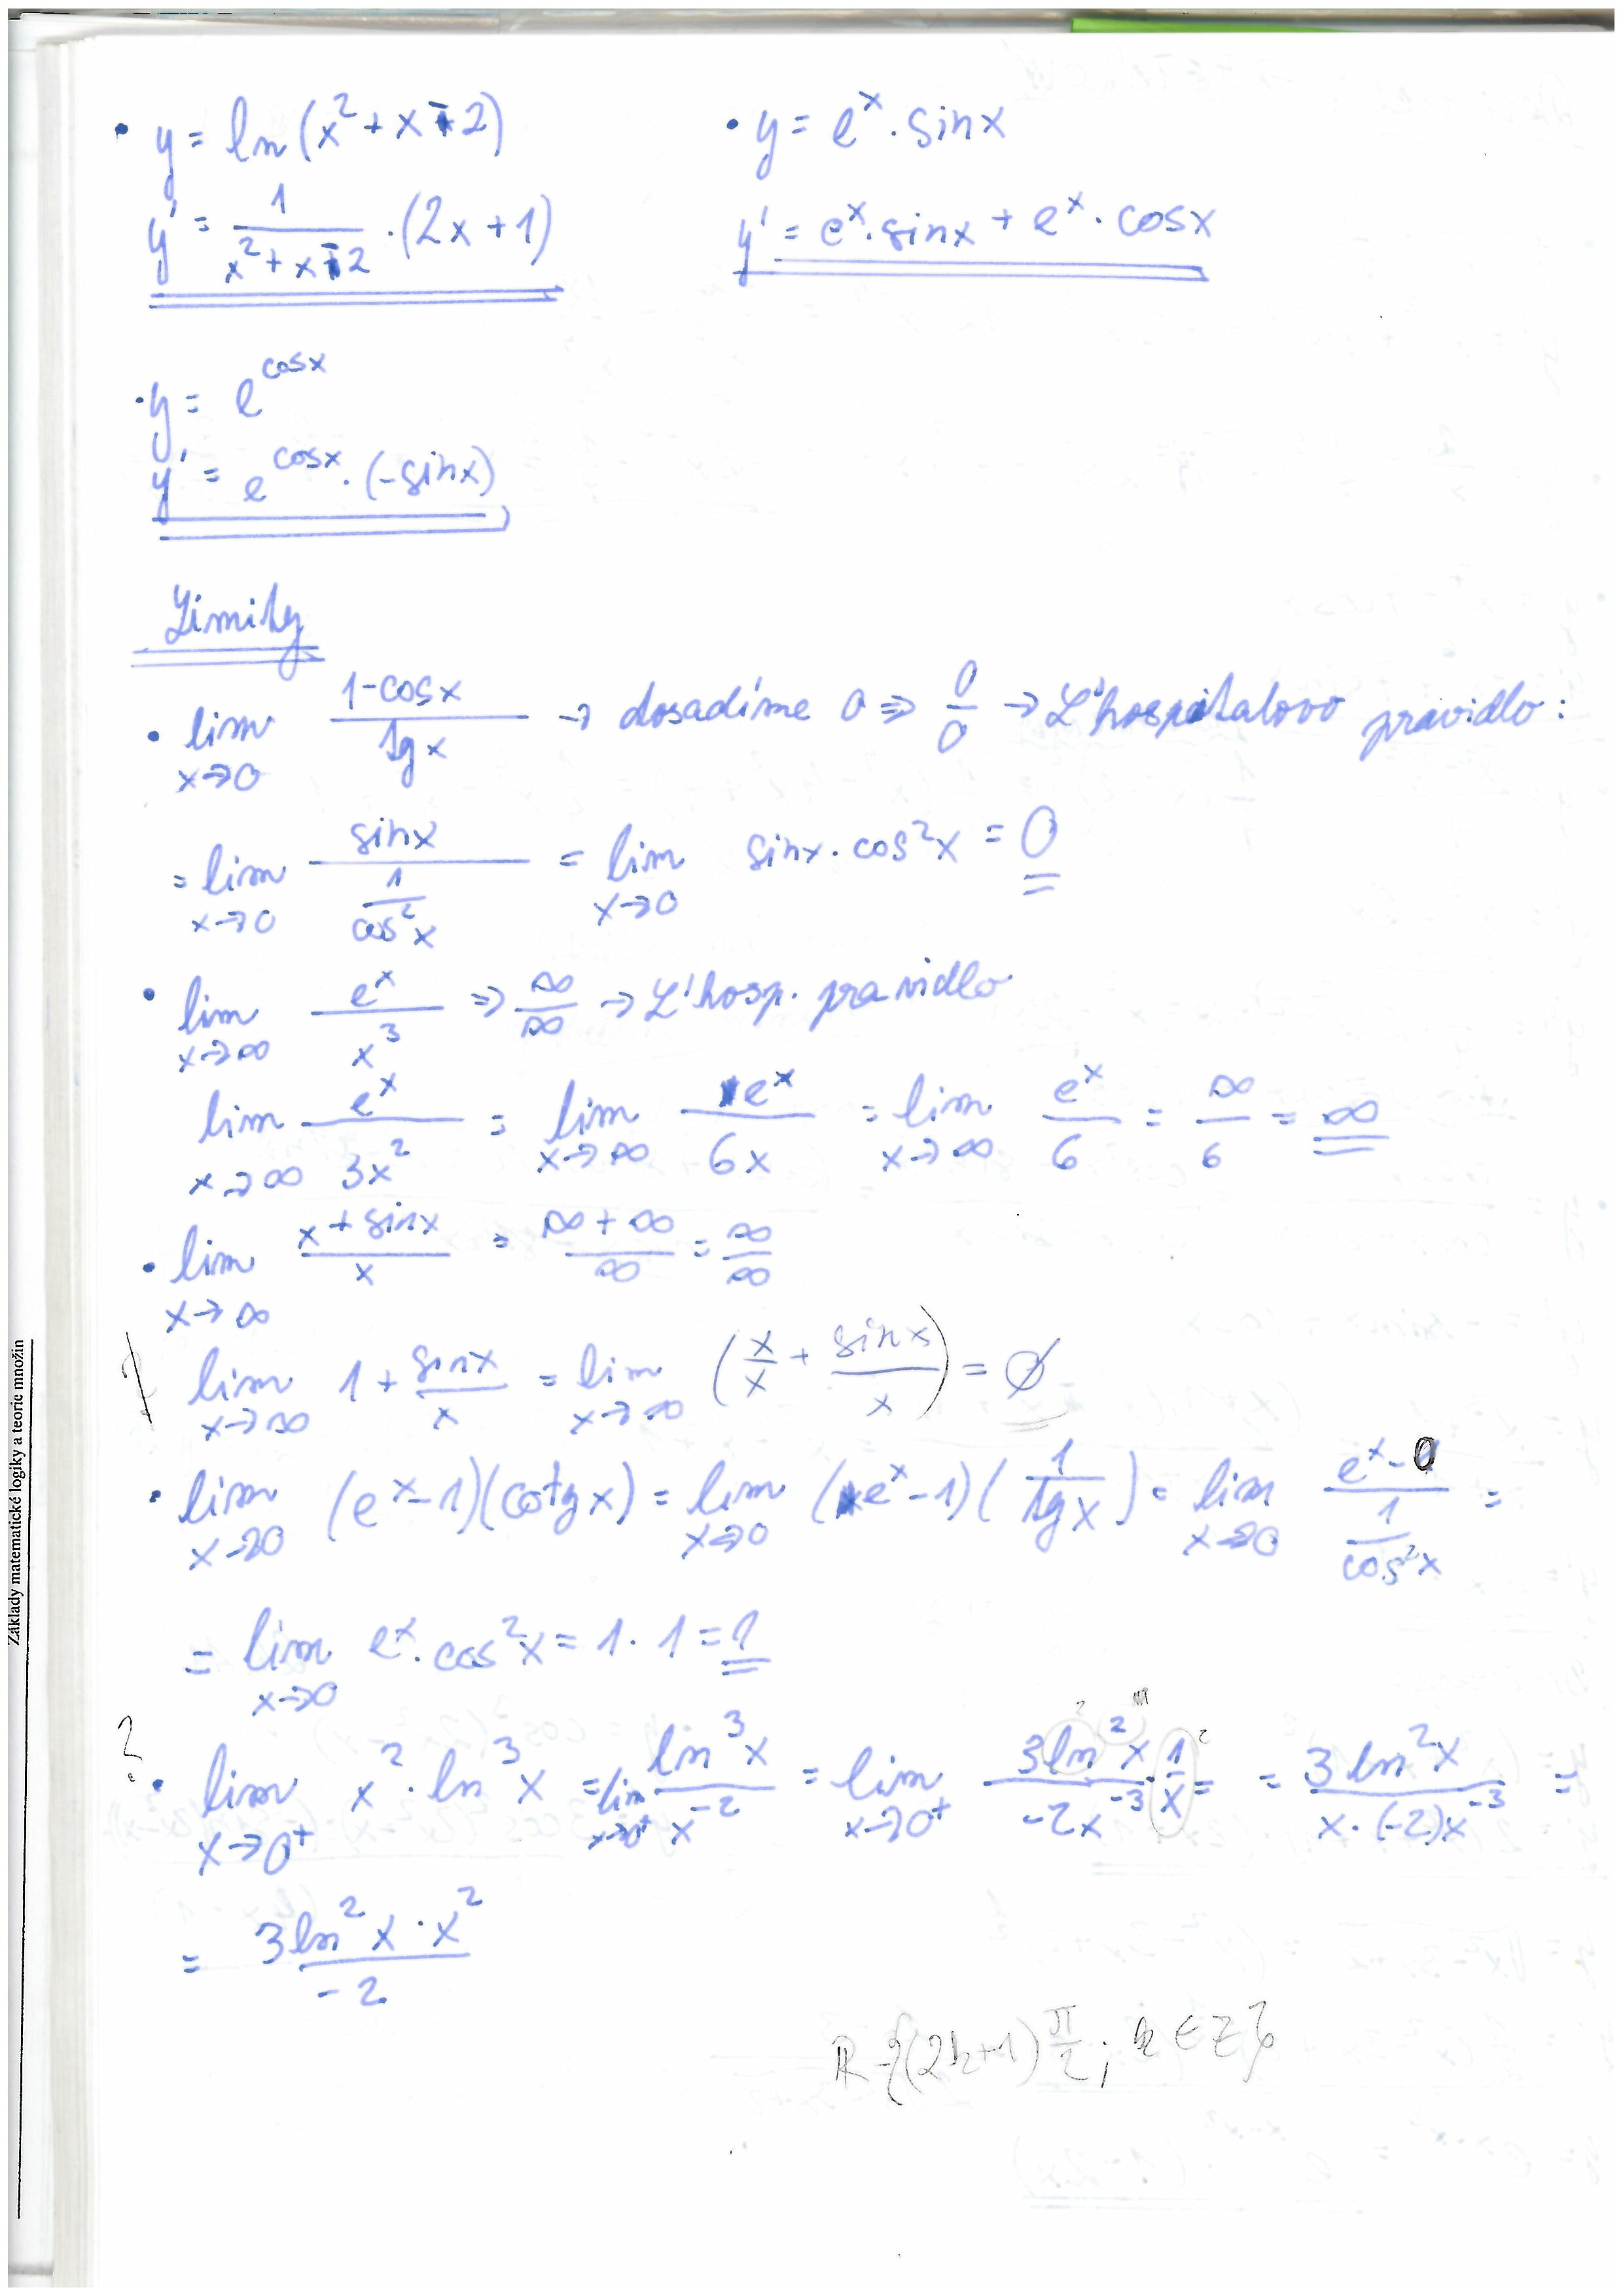 • y = ln(x² + x - 2)
• y = eˣ · sinx
y' = 1/(x² + x - 2) · (2x + 1)
y' = eˣ · sinx + eˣ · cosx
• y = e^(cosx)
y' = e^(cosx) · (-sinx)
Limity
• lim x→0 (1-cosx)/(tgx) → dosadíme 0 ⇒ 0/0 → L'hospitalovo pravidlo:
= lim x→0 sinx/(1/cos²x) = lim x→0 sinx · cos²x = 0
• lim x→∞ eˣ/x³ ⇒ ∞/∞ → L'hosp. pravidlo
lim x→∞ eˣ/3x² = lim x→∞ eˣ/6x = lim x→∞ eˣ/6 = ∞/6 = ∞
• lim x→∞ (x + sinx)/x = (∞ + ∞)/∞ = ∞/∞
lim x→∞ 1 + sinx/x = lim x→∞ (x/x + sinx/x) = ∅
• lim x→0 (eˣ-1)(cotgx) = lim x→0 (eˣ-1)(1/tgx) = lim x→0 (eˣ-0)/(1/cos²x) =
= lim x→0 eˣ · cos²x = 1 · 1 = 1
? • lim x→0⁺ x² · ln³x = lim x→0⁺ ln³x/x⁻² = lim x→0⁺ 3ln²x/(-2x⁻³) · 1/x = = 3ln²x/(x · (-2)x⁻³) =
= (3ln²x · x²)/(-2)
R-{(2k+1)π/2; k∈Z}
Základy matematické logiky a teorie množin